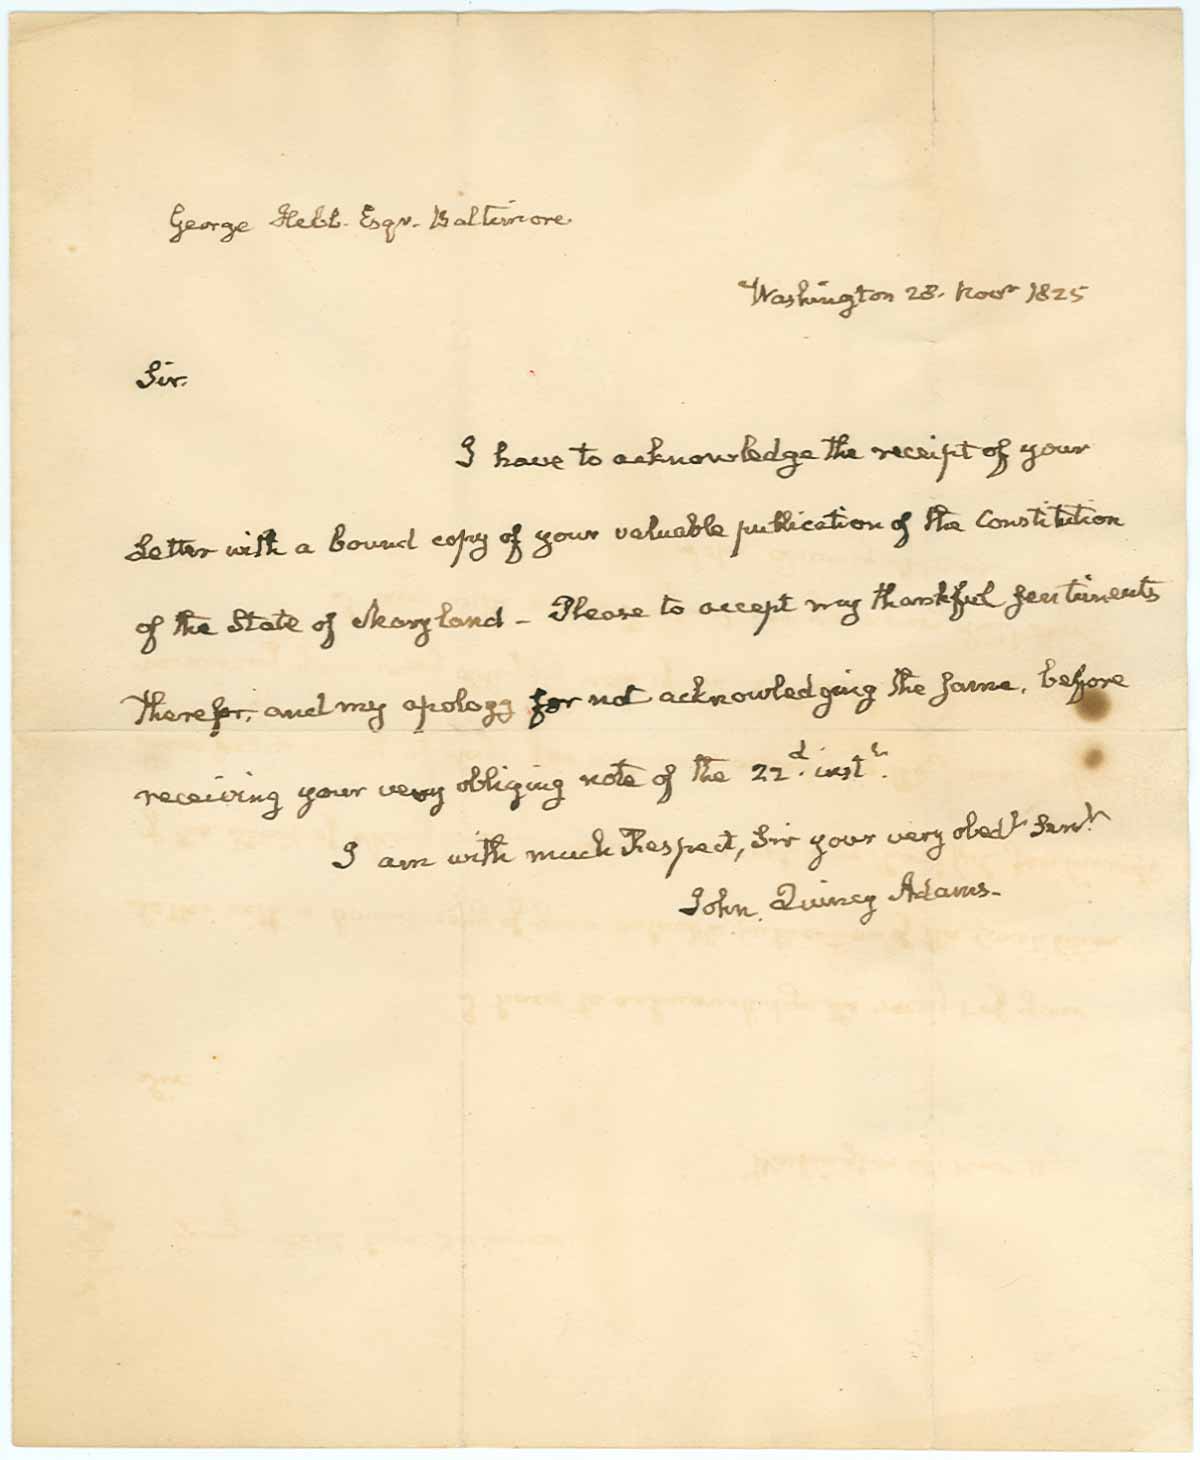 George Hebb. Esqr. Baltimore.
Washington 28. Novr 1825
Sir.
I have to acknowledge the receipt of your
Letter with a bound copy of your valuable publication of the Constitution
of the State of Maryland – Please to accept my thankful sentiments
therefor, and my apology for not acknowledging the same, before
receiving your very obliging note of the 22d. instt.
I am with much Respect, Sir your very obedt Servt.
John Quincy Adams.